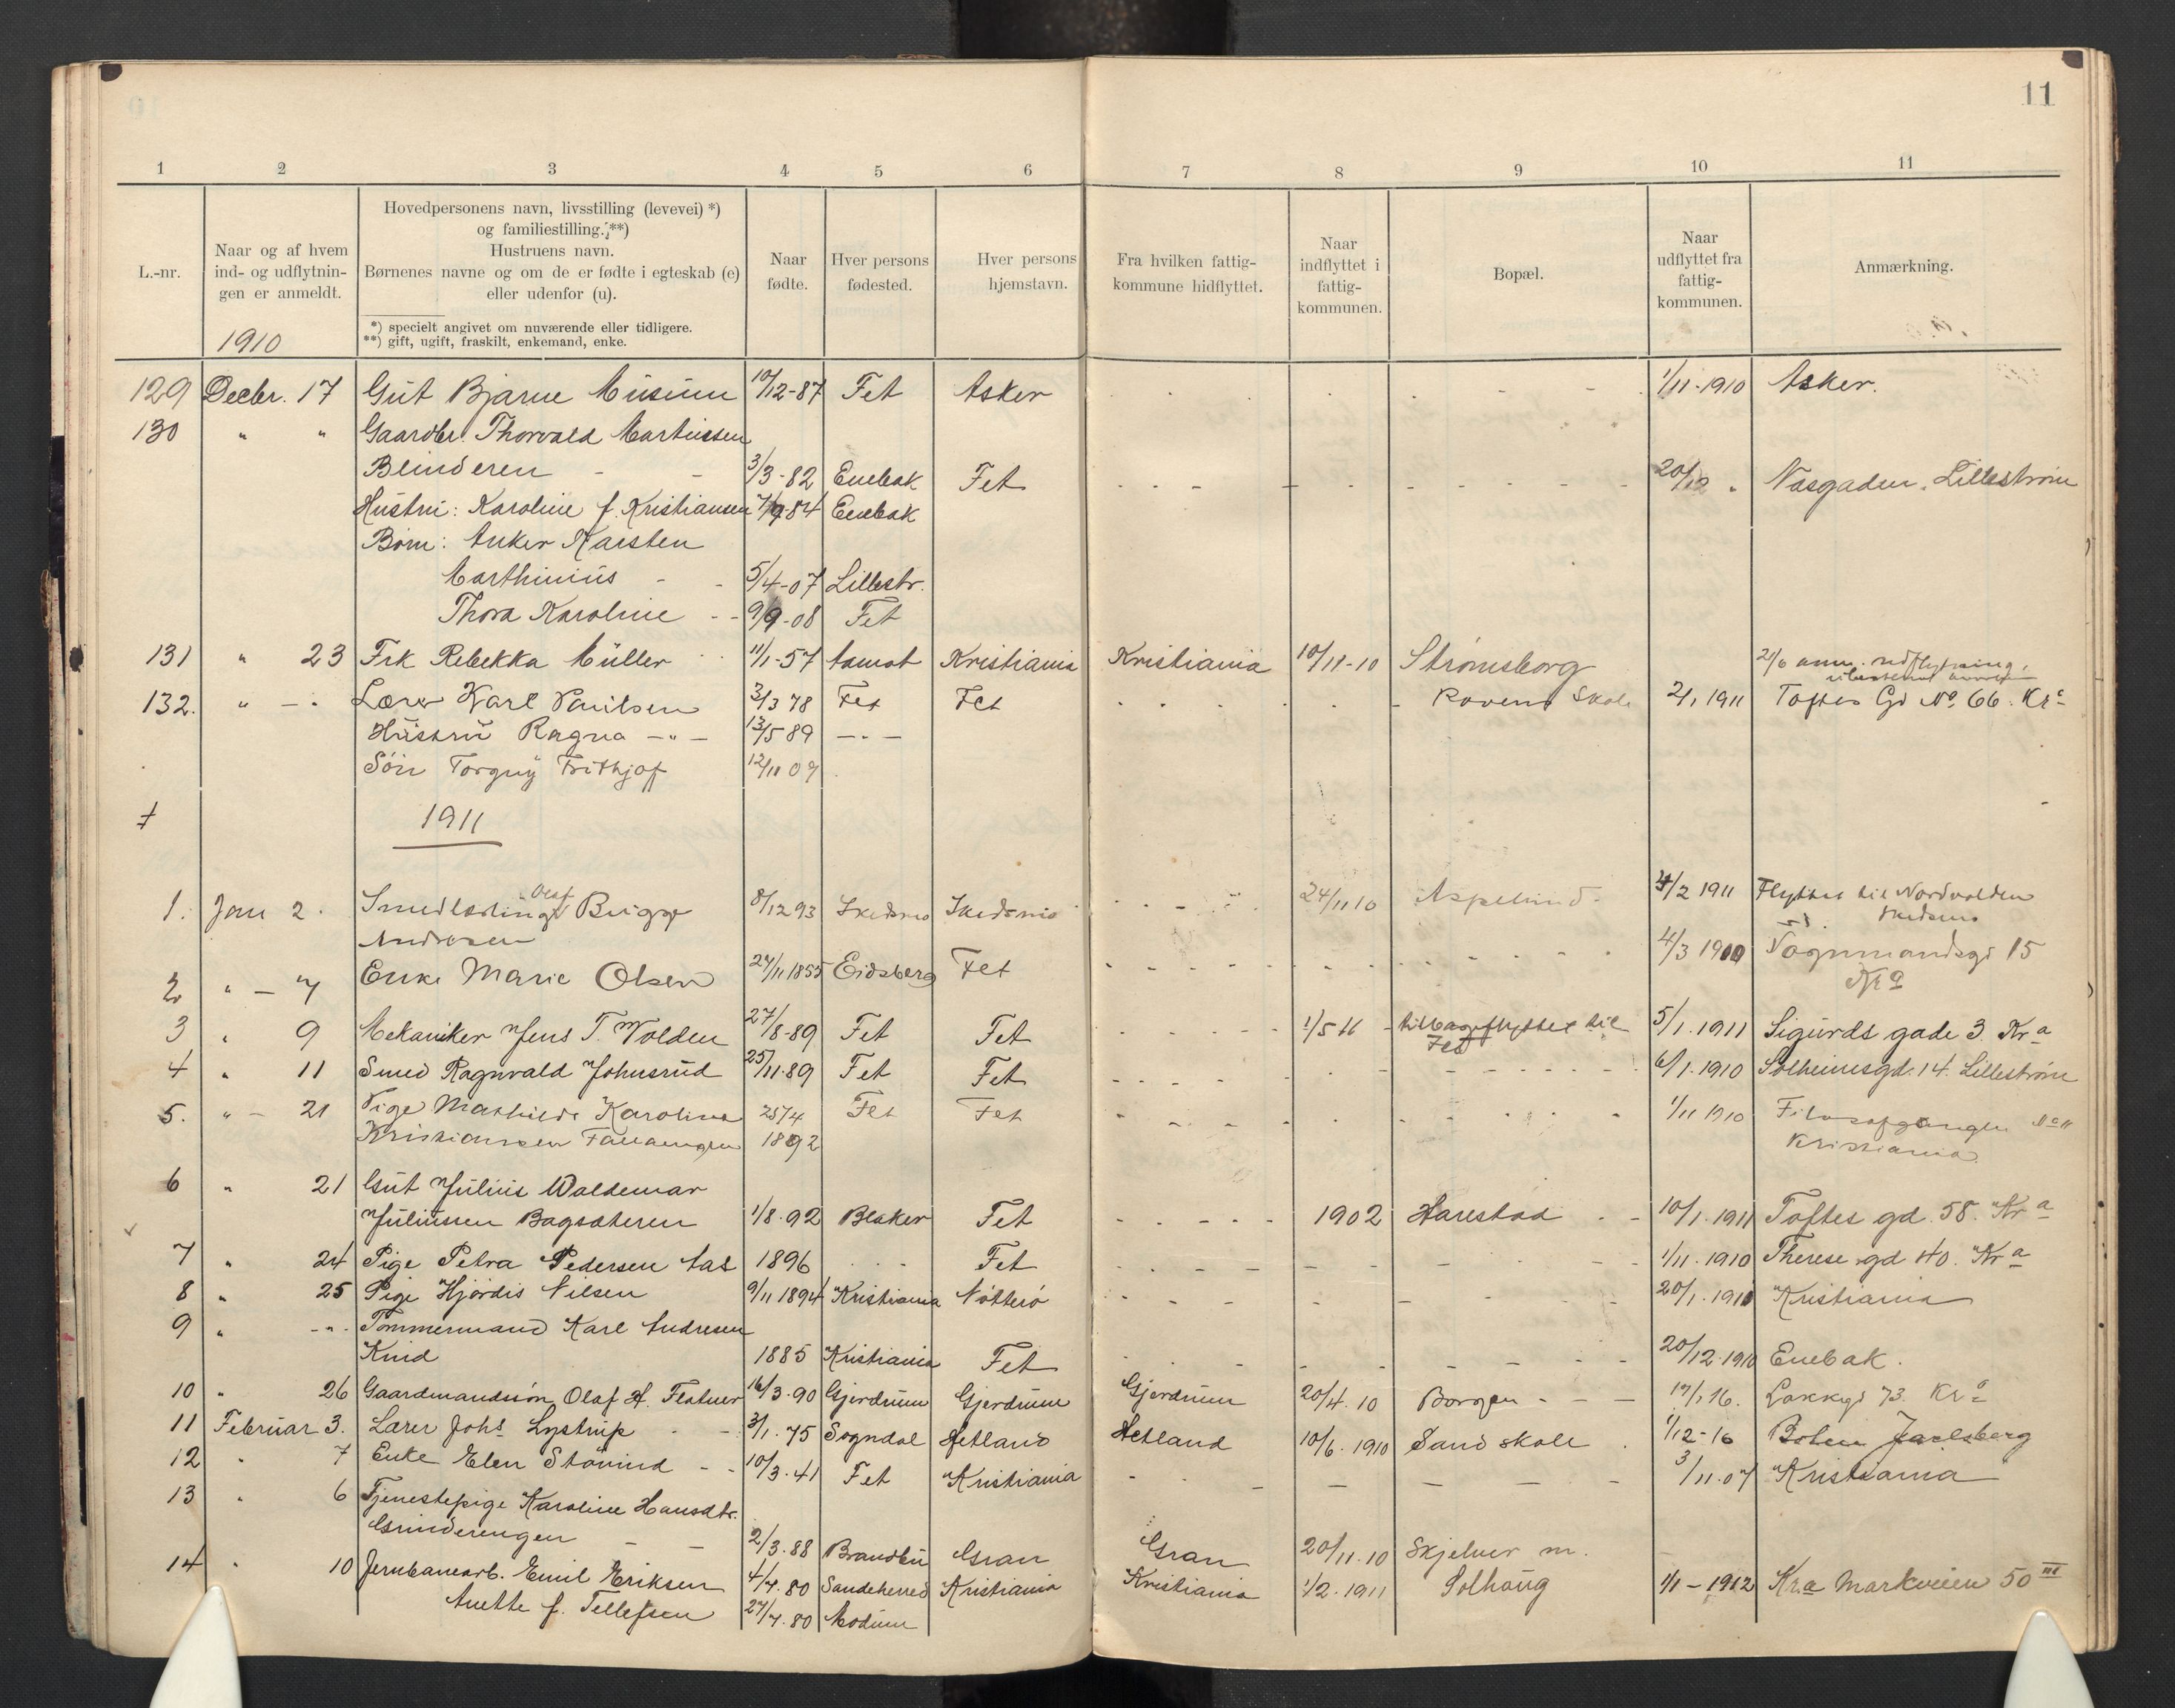 11
1 2 3 4 5 6 7 8 9 10 11
L.-nr.
Naar og af hvem ind- og udflytnin- gen er anmeldt.
1910
Hovedpersonens navn, livsstilling (levevei) *)
og familiestilling. **)
Hustruens navn.
Børnenes navne og om de er fødte i egteskab (e)
eller udenfor (u).
*) specielt angivet om nuværende eller tidligere.
**) gift, ugift, fraskilt, enkemand, enke.
Naar fødte.
Hver persons fødested.
Hver persons hjemstavn.
Fra hvilken fattig- kommune hidflyttet.
Naar indflyttet i fattig- kommunen.
Bopæl.
Naar udflyttet fra fattig- kommunen.
Anmærkning.
129 Decbr. 17 Gut Bjarne Musum 10/12-87 Fet Asker 1/11-1910 Asker.
130 " " Gaardbr. Thorvald Martinssen
Blinderen - - 3/3-82 Enebak Fet 20/12 " Næsgaden, Lillestrøm
Hustru: Karoline f. Kristiansen 7/9-84 Enebak
Børn: Anker Karsten
Marthinius - - 5/4-07 Lillestr.
Thora Karoline - - 9/9-08 Fet
131 " 23 Frk Rebekka Müller 11/1-57 Aamot Kristiania Kristiania 10/11-10 Strømsborg 21/6 anm. udflytning,
132. " - " Lærer Karl Paulsen 3/3 78 Fet Fet Roven Skole 2/1 1911 Toftes Gd No. 66. Kra
Hustru Ragna - " - 13/5 89 - " -
Søn Torgny Frithjof 12/11 07
1911
1. Jan 2. Smedlærling Olaf Birger 8/12 93 Skedsmo Skedsmo 24/11 10 Aspelund 4/2 1911 Flyttet til Nordvolden
Andresen Skedsmo
2 " - 7 Enke Marie Olsen 27/11 1855 Eidsberg Fet 4/3 1910 Vognmandsgd 15
Kra
3 " 9 Mekaniker Jens T. Volden 27/8-89 Fet Fet 1/5 11 tilbageflyttet til Fet 5/1. 1911 Sigurds gade 3. Kra
4 " 11 Smed Ragnvald Johnsrud 25/11-89 Fet Fet 6/1. 1910 Solheimsgd. 14. Lillestrøm
5. " - 21 Pige Mathilde Karoline 25/4 Fet Fet 1/11 1910 Filosofgangen No 11
Kristiansen Fallaengen 1892 Kristiania
6 " 21 Gut Julius Waldemar
Juliussen Bagsæteren 1/8-92 Blaker Fet 1902 Harestad 10/1. 1911 Toftes gd. 58. Kra
7 " 24 Pige Petra Pedersen Aas 1896 Fet 1/11. 1910 Therese gd 40. Kra
8 " 25 Pige Hjørdis Nilsen 9/11 1894 Kristiania Nøtterø 20/1. 1911 Kristiania
9 " - " - Tømmermand Karl Andresen
Knud 1885 Kristiania Fet 20/12. 1910 Enebak.
10 " 26 Gaardmandssøn Olaf H. Flatner 16/3-90 Gjerdrum Gjerdrum Gjerdrum 20/4. 10 Borgen - - - 17/1 16. Lakkegd 73. Kra
11 Februar 3. Lærer Johs Lystrup 3/1. 75 Sogndal Hetland Hetland 10/6. 1910 Sand skole 1/12-16 Jarlsberg
12 " 7 Enke Elen Støvind - - 10/3. 41 Fet Kristiania 3/11.07 Kristiania
13 " 6 Tjenestepige Karoline Hansdtr.
Grinderengen - - 2/3. 88 Brandbu Gran Gran 20/11. 10 Skjelver m.
14 " 10 Jernbanearb. Emil Eriksen 4/4. 80 Sandeherred Kristiania Kristiania 1/2. 1911 Solhaug 1/1 - 1912 Kr.a Markveien 50 III
Anette f. Tellefsen 27/4. 80 Modum